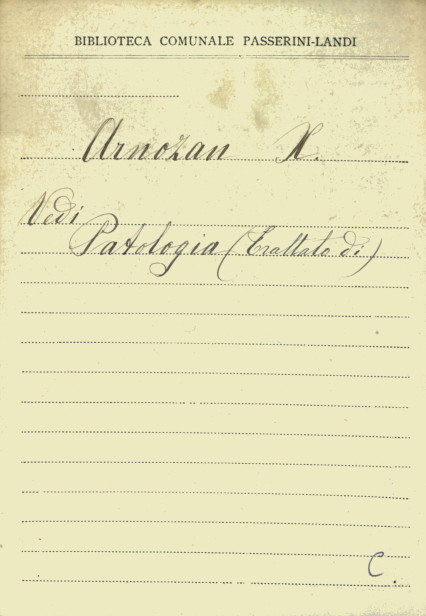 BIBLIOTECA COMUNALE PASSERINI-LANDI
Arnozan X.
Vedi
Patologia (Trattato di)
C.